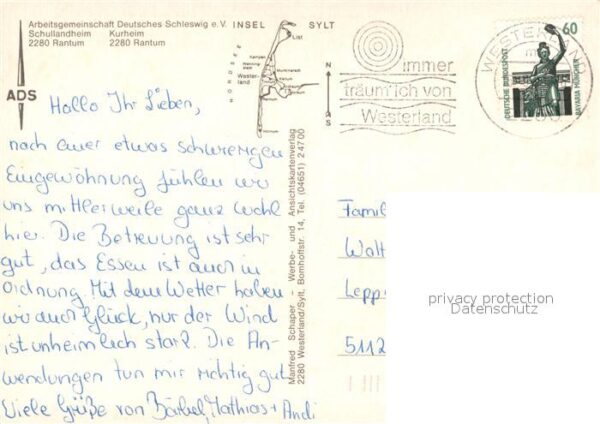 Arbeitsgemeinschaft Deutsches Schleswig e.V.
Schullandheim Kurheim
2280 Rantum 2280 Rantum
ADS
INSEL SYLT
NORDSEE
List
Kampen
Wester-
land
N
S
immer
träum' ich von
Westerland
WESTERLAND
60
DEUTSCHE BUNDESPOST
BAVARIA MÜNCHEN
Hallo Ihr Lieben,
nach einer etwas schwierigen
Eingewöhnung fühlen wir
uns mittlerweile ganz wohl
hier. Die Betreuung ist sehr
gut, das Essen ist auch in
Ordnung. Mit dem Wetter haben
wir auch Glück, nur der Wind
ist unheimlich stark. Die An-
wendungen tun mir richtig gut.
Viele Grüße von Bärbel, Mathias + Andi
Manfred Schaper - Werbe- und Ansichtskartenverlag
2280 Westerland/Sylt, Bomhoffstr. 14, Tel. (04651) 2 47 00
Famil
Walt
Lepp
5112
privacy protection
Datenschutz